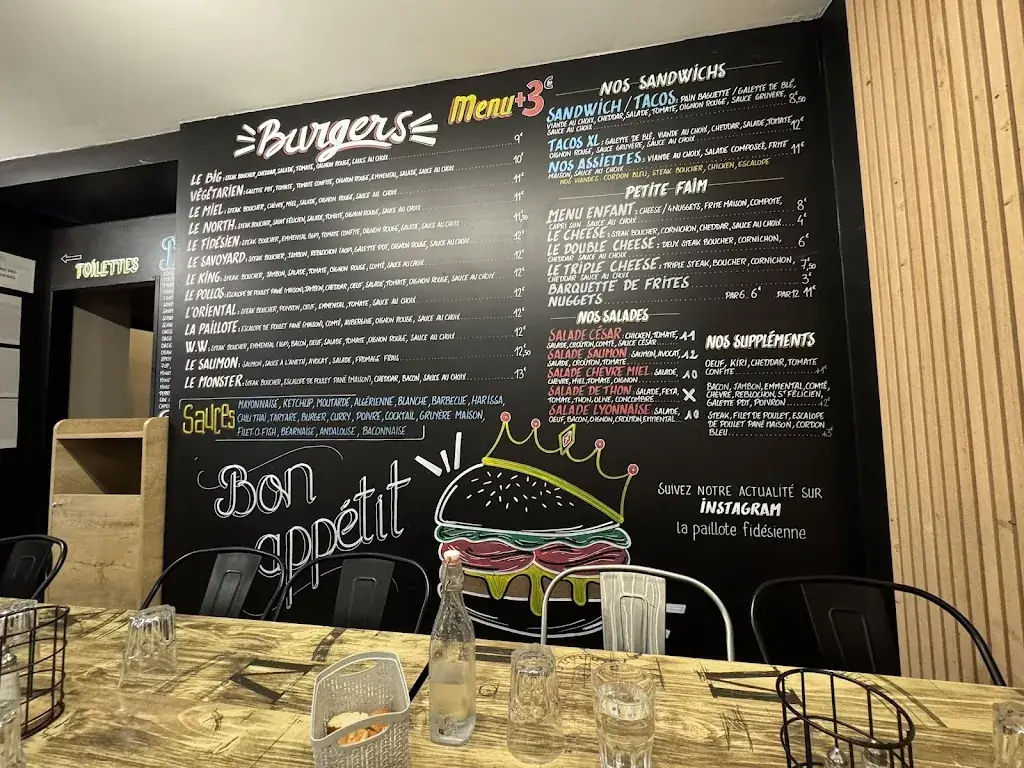 Burgers
Menu+3€
LE BIG: STEAK BOUCHER, CHEDDAR, SALADE, TOMATE, OIGNON ROUGE, SAUCE AU CHOIX 9€
VÉGÉTARIEN: GALETTE PDT, TOMATE, TOMATE CONFITE, OIGNON ROUGE, EMMENTAL, SALADE, SAUCE AU CHOIX 10€
LE MIEL: STEAK BOUCHER, CHÈVRE, MIEL, SALADE, OIGNON ROUGE, SAUCE AU CHOIX 11€
LE NORTH: STEAK BOUCHER, SAINT FÉLICIEN, SALADE, TOMATE, OIGNON ROUGE, SAUCE AU CHOIX 11€
LE FIDÉSIEN: STEAK BOUCHER, EMMENTAL (IGP), TOMATE CONFITE, OIGNON ROUGE, SALADE, SAUCE AU CHOIX 11,50
LE SAVOYARD: STEAK BOUCHER, JAMBON, REBLOCHON (AOP), GALETTE PDT, OIGNON ROUGE, SAUCE AU CHOIX 12€
LE KING: STEAK BOUCHER, JAMBON, SALADE, TOMATE, OIGNON ROUGE, COMTÉ, SAUCE AU CHOIX 12€
LE POLLOS: ESCALOPE DE POULET PANÉ (MAISON), CHEDDAR, OEUF, SALADE, TOMATE, OIGNON ROUGE, SAUCE AU CHOIX 12€
L'ORIENTAL: STEAK BOUCHER, POIVRON, OEUF, EMMENTAL, TOMATE, SAUCE AU CHOIX 12€
LA PAILLOTE: ESCALOPE DE POULET PANÉ (MAISON), COMTÉ, AUBERGINE, OIGNON ROUGE, SAUCE AU CHOIX 12€
W.W: STEAK BOUCHER, EMMENTAL (IGP), BACON, OEUF, SALADE, TOMATE, OIGNON ROUGE, SAUCE AU CHOIX 12€
LE SAUMON: SAUMON, SAUCE À L'ANETH, AVOCAT, SALADE, FROMAGE FRAIS 12,50
LE MONSTER: STEAK BOUCHER, ESCALOPE DE POULET PANÉ (MAISON), CHEDDAR, BACON, SAUCE AU CHOIX 13€
Sauces
MAYONNAISE, KETCHUP, MOUTARDE, ALGÉRIENNE, BLANCHE, BARBECUE, HARISSA,
CHILI THAÏ, TARTARE, BURGER, CURRY, POIVRE, COCKTAIL, GRUYÈRE MAISON,
FILET-O-FISH, BÉARNAISE, ANDALOUSE, BACONNAISE
Bon
appétit
TOILETTES
NOS SANDWICHS
SANDWICH / TACOS: PAIN BAGUETTE / GALETTE DE BLÉ,
VIANDE AU CHOIX, CHEDDAR, SALADE, TOMATE, OIGNON ROUGE, SAUCE GRUYÈRE,
SAUCE AU CHOIX 8€,50
TACOS XL: GALETTE DE BLÉ, VIANDE AU CHOIX, CHEDDAR, SALADE, TOMATE,
OIGNON ROUGE, SAUCE GRUYÈRE, SAUCE AU CHOIX 12€
NOS ASSIETTES: VIANDE AU CHOIX, SALADE COMPOSÉE, FRITE
MAISON, SAUCE AU CHOIX 11€
NOS VIANDES: CORDON BLEU, STEAK BOUCHER, CHICKEN, ESCALOPE
PETITE FAIM
MENU ENFANT: CHEESE / 4 NUGGETS, FRITE MAISON, COMPOTE,
CAPRI SUN, SAUCE AU CHOIX 8€
LE CHEESE: STEAK BOUCHER, CORNICHON, CHEDDAR, SAUCE AU CHOIX 4€
LE DOUBLE CHEESE: DEUX STEAK BOUCHER, CORNICHON,
CHEDDAR SAUCE AU CHOIX 6€
LE TRIPLE CHEESE: TRIPLE STEAK BOUCHER, CORNICHON,
CHEDDAR SAUCE AU CHOIX 7€,50
BARQUETTE DE FRITES 3€
NUGGETS PAR 6. 6€ PAR 12 11€
NOS SALADES
SALADE CÉSAR: CHICKEN, TOMATE, 11
SALADE, CROÛTON, COMTÉ, SAUCE CÉSAR
SALADE SAUMON: SAUMON, AVOCAT, 12
SALADE, CROÛTON, TOMATE
SALADE CHÈVRE MIEL: SALADE, 10
CHÈVRE, MIEL, TOMATE, OIGNON
SALADE DE THON: SALADE, FETA, X
TOMATE, THON, OLIVE, CONCOMBRE
SALADE LYONNAISE: SALADE, 10
OEUF, BACON, OIGNON, CROÛTON, EMMENTAL
NOS SUPPLÉMENTS
OEUF, KIRI, CHEDDAR, TOMATE
CONFITE +1€
BACON, JAMBON, EMMENTAL, COMTÉ,
CHÈVRE, REBLOCHON, ST FÉLICIEN,
GALETTE PDT, POIVRON +2€
STEAK, FILET DE POULET, ESCALOPE
DE POULET PANÉ MAISON, CORDON
BLEU +3€
SUIVEZ NOTRE ACTUALITÉ SUR
INSTAGRAM
la paillote fidésienne